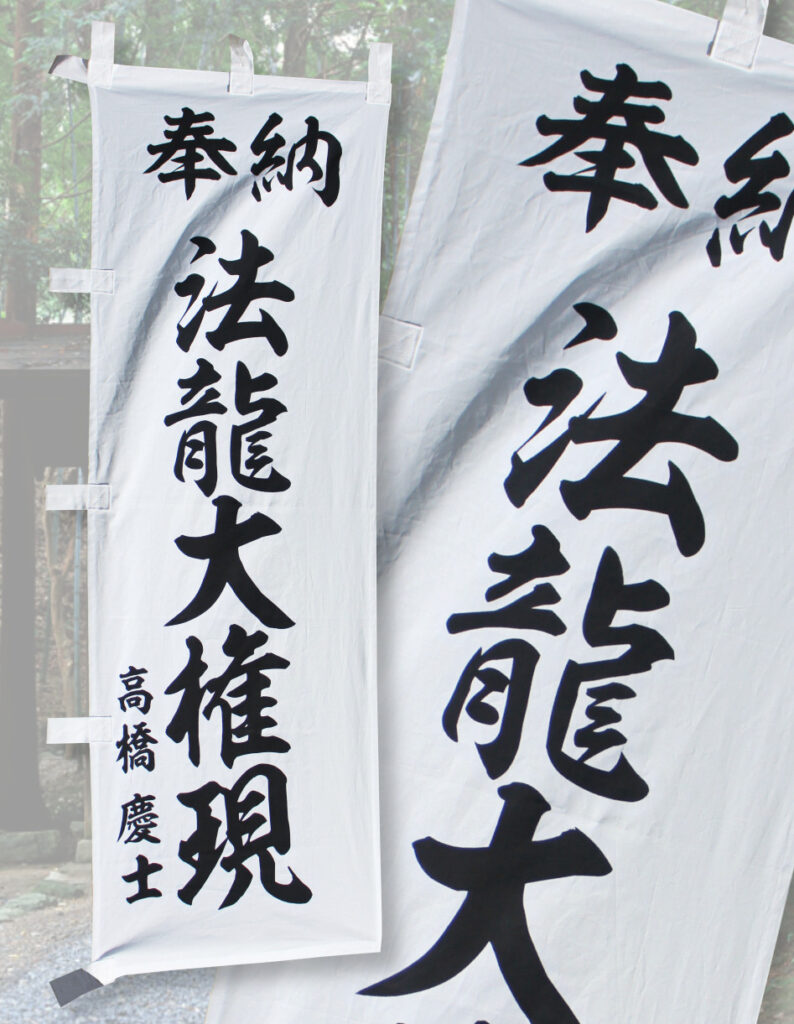 奉納
法龍大権現
高橋慶士
奉納
法龍大